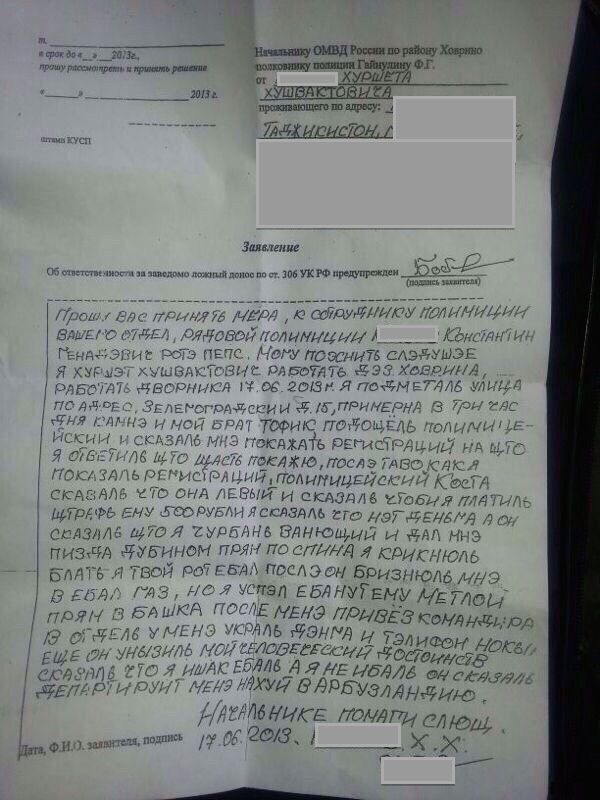 т.
в срок до «__» __2013г.,
прошу рассмотреть и принять решение
«______» 2013 г.
штамп КУСП
Начальнику ОМВД России по району Ховрино
полковнику полиции Гайнулину Ф.Г.
от ХУРШЕТА
ХУШВАКТОВИЧА
проживающего по адресу:
ТАДЖИКИСТОН,
Заявление
Об ответственности за заведомо ложный донос по ст. 306 УК РФ предупрежден
(подпись заявителя)
ПРОШУ ВАС ПРИНЯТЬ МЕРА, К СОТРУДНИКУ ПОЛИМИЦИИ
ВАШЕГО ОТДЕЛ, РЯДОВОЙ ПОЛИМИЦИИ КОНСТАНТИН
ГЕНАДЭВИЧ РОТЭ ПЕПС. МОМУ ПОЭСНИТЬ СЛЭДУШЭЕ
Я ХУРШЭТ ХУШВАКТОВИЧ РАБОТАТЬ ДЭЗ ХОВРИНА,
РАБОТАТЬ ДВОРНИКА 17.06.2013Г. Я ПОДМЕТАЛЬ УЛИЦА
ПО АДРЕС, ЗЕЛЕМОГРАДСКИЙ Д.15, ПРИМЕРНА В ТРИ ЧАС
ДНЯ КАМНЭ И МОЙ БРАТ ТОФИК ПОДОЩЁЛЬ ПОЛИМИЦЕ-
ЙСКИЙ И СКАЗАЛЬ МНЭ ПОКАЖАТЬ РЕГИСТРАЦИЙ НА ЩТО
Я ОТВЕТИЛЬ ЩТО ЩАСТЬ ПОКАЖЮ, ПОСЛЭ ТАВО КАК Я
ПОКАЗАЛЬ РЕГИСТРАЦИЙ, ПОЛИМИЦЕЙСКИЙ КОСТА
СКАЗАЛЬ ЧТО ОНА ЛЕВЫЙ И СКАЗАЛЬ ЧТОБИ Я ПЛАТИЛЬ
ЩТРАФЬ ЕМУ 500 РУБЛИ Я СКАЗАЛЬ ЧТО НЭТ ДЕНЬГА А ОН
СКАЗАЛЬ ЩТО Я ЧУРБАНЬ ВАНЮЩИЙ И ДАЛ МНЭ
ПИЗДА ДУБИНОМ ПРЯМ ПО СПИНА Я КРИКНЮЛЬ
БЛАТЬ Я ТВОЙ РОТ ЕБАЛ ПОСЛЭ ОН БРИЗНЮЛЬ МНЭ
В ЕБАЛ ГАЗ, НО Я УСПЭЛ ЕБАНУТ ЕМУ МЕТЛОЙ
ПРЯМ В БАШКА ПОСЛЕ МЕНЭ ПРИВЁЗ КОМАНДИРА
В ОТДЕЛЬ У МЕНЭ УКРАЛЬ ДЭНГА И ТЭЛИФОН НОКЫ
ЕЩЕ ОН УНЫЗИЛЬ МОЙ ЧЕЛОВЕЧЕСКИЙ ДОСТОИНСТВ
СКАЗАЛЬ ЧТО Я ИШАК ЕБАЛЬ А Я НЕ ИБАЛЬ ОН СКАЗАЛЬ
ДЕПАРТИРУИТ МЕНЭ НАХУЙ В АРБУЗЛАНДИЮ.
НАЧАЛЬНИКЕ ПОМАГИ СЛЮЩ.
Дата, Ф.И.О. заявителя, подпись
17.06.2013. Х.Х.